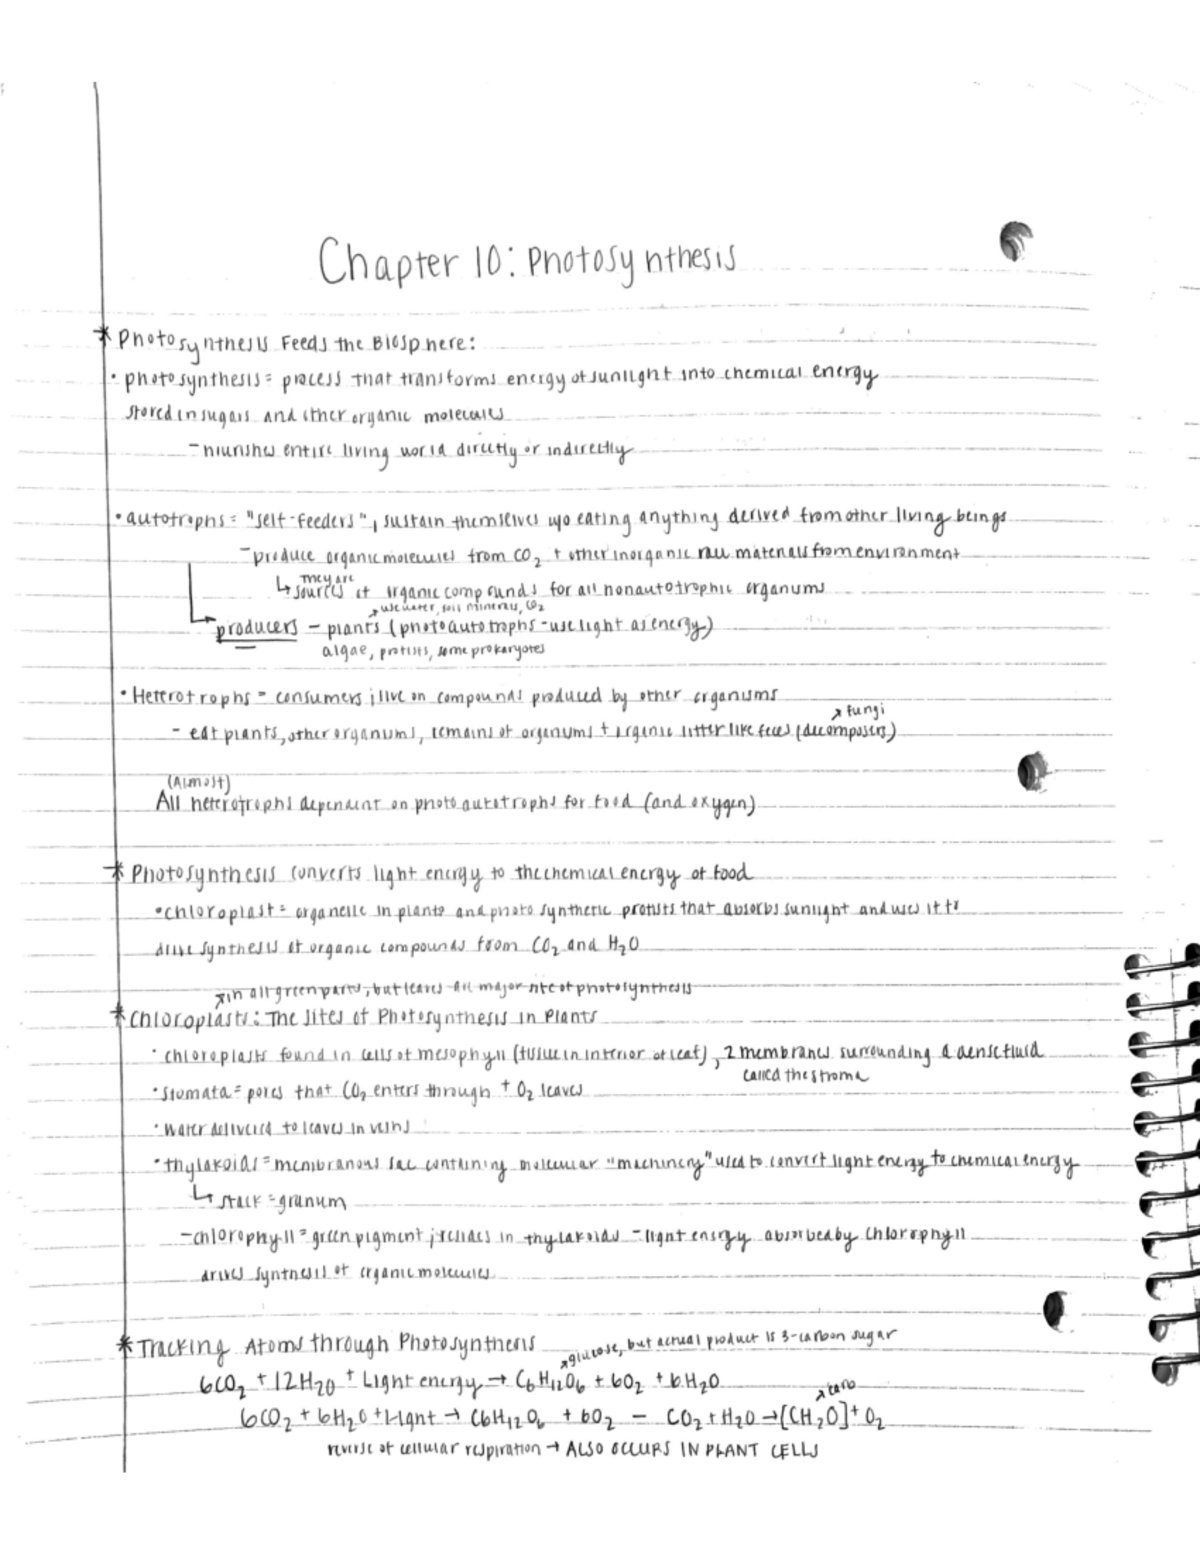 Chapter 10: Photosynthesis
* Photosynthesis Feeds the Biosphere:
• photosynthesis = process that transforms energy of sunlight into chemical energy
stored in sugars and other organic molecules
- nourishes entire living world directly or indirectly
• autotrophs = "self-feeders", sustain themselves w/o eating anything derived from other living beings
- produce organic molecules from CO₂ + other inorganic raw materials from environment
they are
↳ sources of organic compounds for all nonautotrophic organisms
↗ use water, soil minerals, CO₂
producers - plants (photoautotrophs - use light as energy)
algae, protists, some prokaryotes
• Heterotrophs = consumers; live on compounds produced by other organisms
↗ fungi
- eat plants, other organisms, remains of organisms + organic litter like feces (decomposers)
(Almost)
All heterotrophs dependent on photoautotrophs for food (and oxygen)
* Photosynthesis converts light energy to the chemical energy of food
• chloroplast = organelle in plants and photosynthetic protists that absorbs sunlight and uses it to
drive synthesis of organic compounds from CO₂ and H₂O
↗ in all green parts, but leaves are major site of photosynthesis
* Chloroplasts: The Sites of Photosynthesis in Plants
• chloroplasts found in cells of mesophyll (tissue in interior of leaf), 2 membranes surrounding a dense fluid
called the stroma
• stomata = pores that CO₂ enters through + O₂ leaves
• water delivered to leaves in veins
• thylakoids = membranous sac containing molecular "machinery" used to convert light energy to chemical energy
↳ stack = granum
- chlorophyll = green pigment; resides in thylakoids - light energy absorbed by chlorophyll
drives synthesis of organic molecules
* Tracking Atoms through Photosynthesis
↗ glucose, but actual product is 3-carbon sugar
6CO₂ + 12H₂O + Light energy → C₆H₁₂O₆ + 6O₂ + 6H₂O
↗ carb
6CO₂ + 6H₂O + Light → C₆H₁₂O₆ + 6O₂ - CO₂ + H₂O → [CH₂O] + O₂
reverse of cellular respiration → ALSO OCCURS IN PLANT CELLS